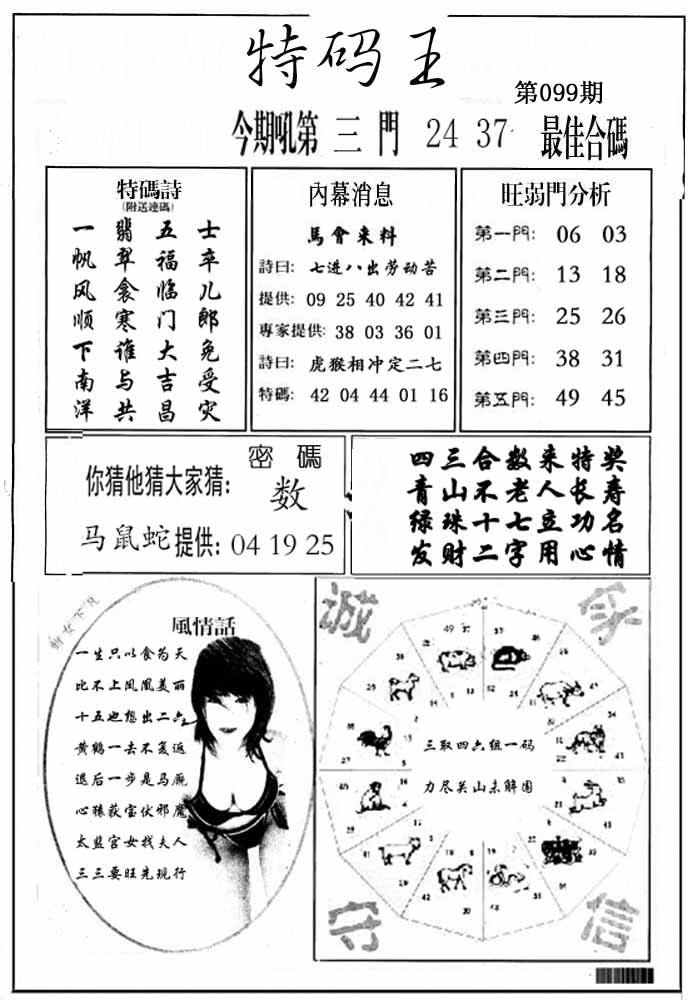 特码王
第099期
今期吼第 三 門 24 37 最佳合碼
特碼詩
(附送連碼)
一帆风顺下南洋
翡翠衾寒谁与共
五福临门大吉昌
士卒儿郎免受灾
內幕消息
馬會来料
詩曰: 七进八出劳动苦
提供: 09 25 40 42 41
專家提供: 38 03 36 01
詩曰: 虎猴相冲定二七
特碼: 42 04 44 01 16
旺弱門分析
第一門: 06 03
第二門: 13 18
第三門: 25 26
第四門: 38 31
第五門: 49 45
密 碼
你猜他猜大家猜: 数
马鼠蛇提供: 04 19 25
四三合数来特奖
青山不老人长寿
绿珠十七立功名
发财二字用心情
風情話
一生只以食为天
比不上凤凰美丽
十五也想出二六
黄鹤一去不复返
退后一步是马厩
心猿获宝伏邪魔
太监宫女找夫人
三三要旺先现行
诚
家
三取四六组一码
力尽关山未解围
守
信